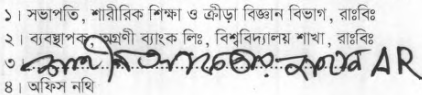 ১। সভাপতি, শারীরিক শিক্ষা ও ক্রীড়া বিজ্ঞান বিভাগ, রাঃবিঃ
২। ব্যবস্থাপক, অগ্রণী ব্যাংক লিঃ, বিশ্ববিদ্যালয় শাখা, রাঃবিঃ
৩ AR
৪। অফিস নথি